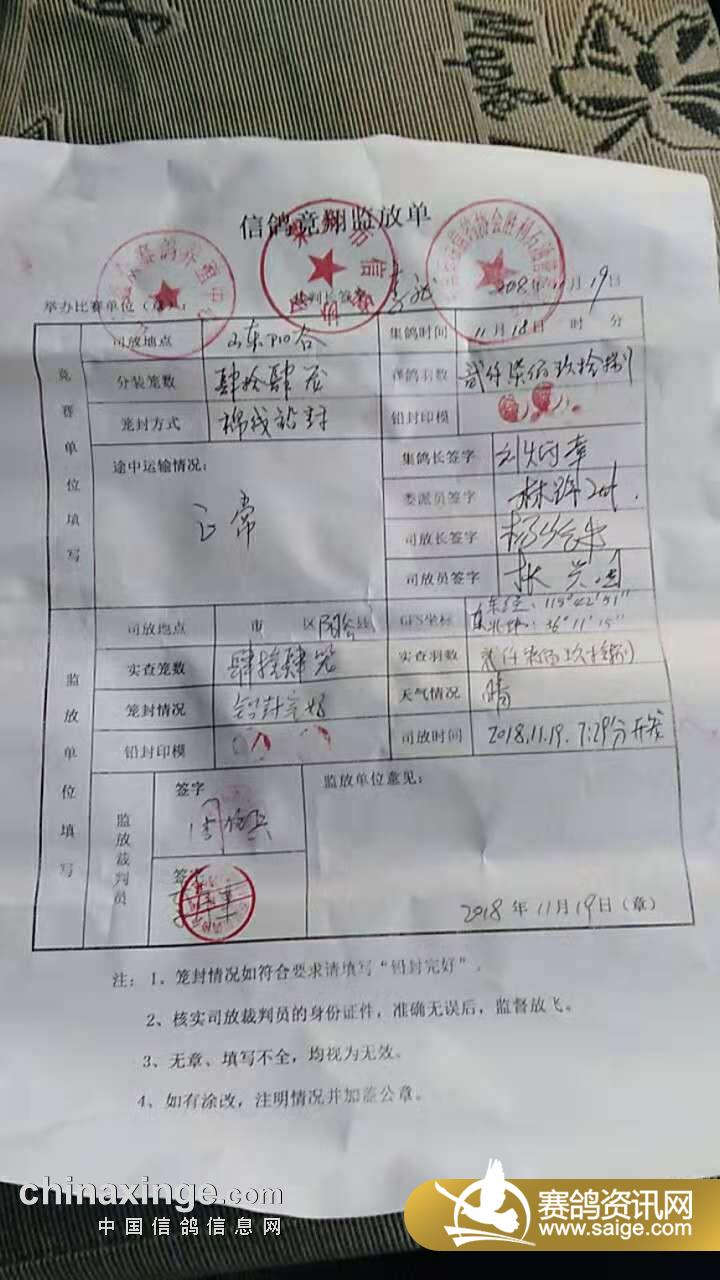 Maps
信鸽竞翔监放单
举办比赛单位（章）：
2018年11月19日
竞赛单位填写
司放地点 山东阳谷 集鸽时间 11月18日 时 分
分装笼数 肆拾肆笼 羽数 贰仟柒佰玖拾捌
笼封方式 棉线铅封 铅封印模
途中运输情况： 正常
集鸽长签字
委派员签字
司放长签字
司放员签字
监放单位填写
司放地点 市 区阳谷县 GPS坐标 东经：115°42′51″ 北纬：36°11′15″
实查笼数 肆拾肆笼 实查羽数
笼封情况 铅封完好 天气情况 晴
铅封印模 司放时间 2018.11.19. 7:29分开笼
监放裁判员
签字
签字
监放单位意见：
2018年11月19日（章）
注：1、笼封情况如符合要求请填写“铅封完好”。
2、核实司放裁判员的身份证件，准确无误后，监督放飞。
3、无章、填写不全，均视为无效。
4、如有涂改，注明情况并加盖公章。
chinaxinge.com
中国信鸽信息网
赛鸽资讯网
www.saige.com